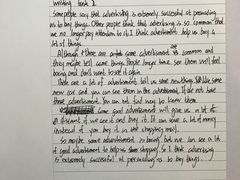 writing task 2
Some people say that advertising is extremely successful at persuading
us to buy things. Other people think that advertising is so common that
we no longer pay attention to it. I think advertisement help us buy a
lot of things.
Although there are some advertisement is common and
they maybe tell same things. People long time see them will feel
boring and don't want to see it again.
There are a lot of advertisement tell us some new things. Like some
new car and you can see them in the advertisement. If do not have
these advertisement. You can not find way to know them
Some good advertisement will give us a lot of
if we see it and buy it. It can save a lot of money
instead of you buy it in the shopping mall.
So maybe some advertisement is boring but we can see a lot
of good advertisement to help us shopping. So I think advertising
is extremely successful at persuading us to buy things.